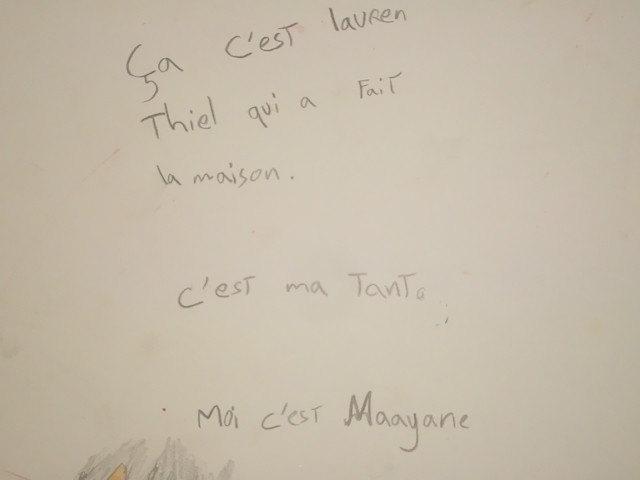 Ça c'est lauren
Thiel qui a Fait
la maison.
c'est ma Tanta
Moi c'est Maayane